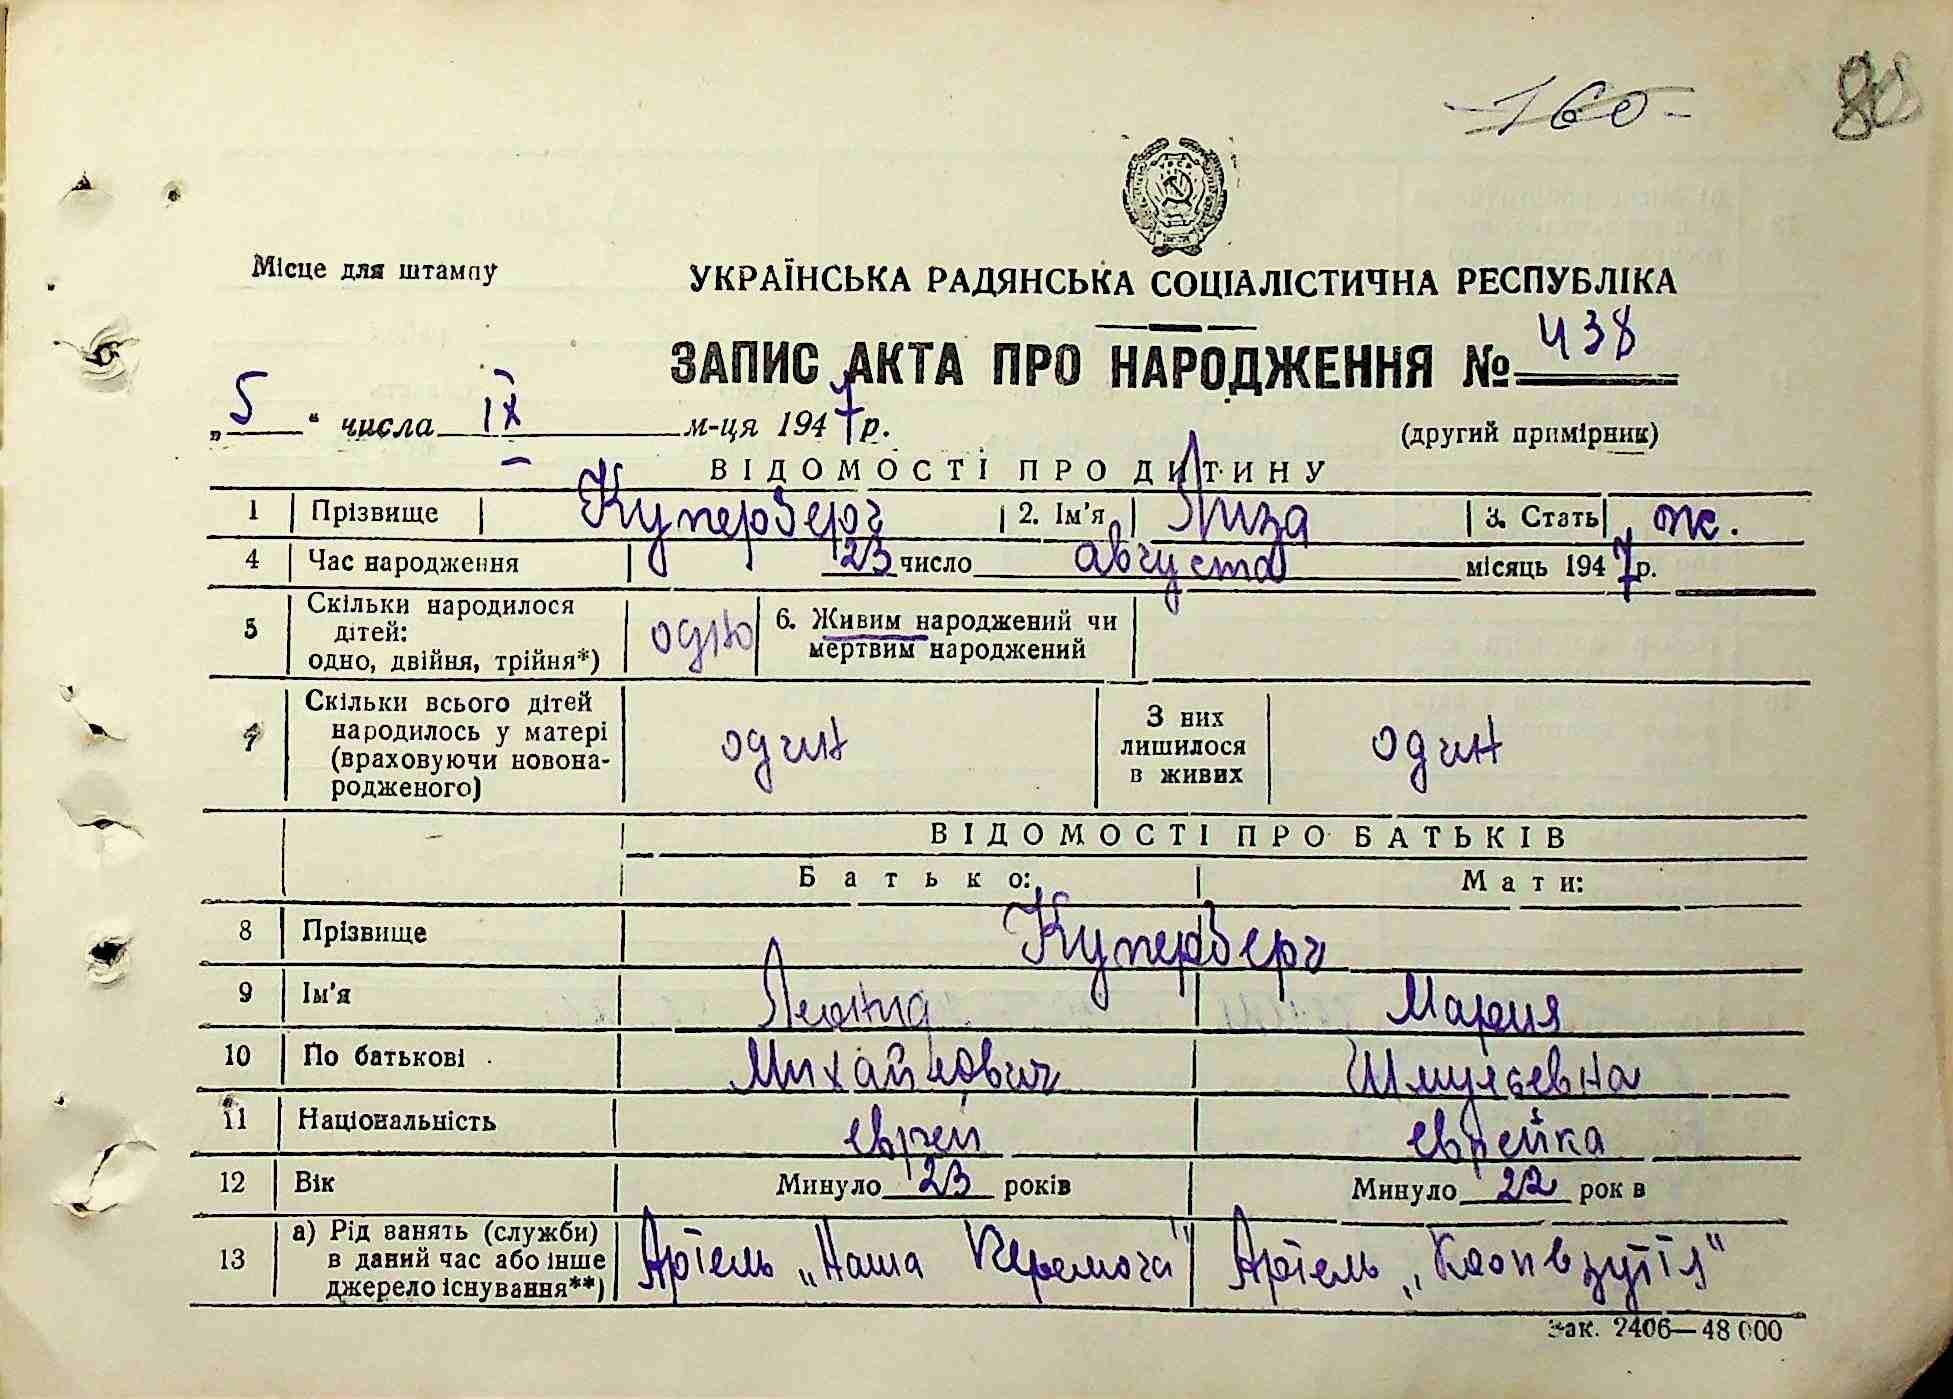 160
80
Місце для штампу
УКРАЇНСЬКА РАДЯНСЬКА СОЦІАЛІСТИЧНА РЕСПУБЛІКА
ЗАПИС АКТА ПРО НАРОДЖЕННЯ № 438
„5“ числа IX м-ця 1947 р.
(другий примірник)
ВІДОМОСТІ ПРО ДИТИНУ
1 Прізвище Куперберг 2. Ім'я Лиза 3. Стать ж.
4 Час народження 23 число августа місяць 1947 р.
5 Скільки народилося дітей: одно, двійня, трійня*) одно 6. Живим народжений чи мертвим народжений
7 Скільки всього дітей народилось у матері (враховуючи новонародженого) один З них лишилося в живих один
ВІДОМОСТІ ПРО БАТЬКІВ
Батько: Мати:
8 Прізвище Куперберг
9 Ім'я Леонид Мария
10 По батькові Михайлович Шмульевна
11 Національність еврей еврейка
12 Вік Минуло 23 років Минуло 22 рок в
13 а) Рід занять (служби) в даний час або інше джерело існування**) Артель „Наша Перемога" Артель
Зак. 2406—48 000